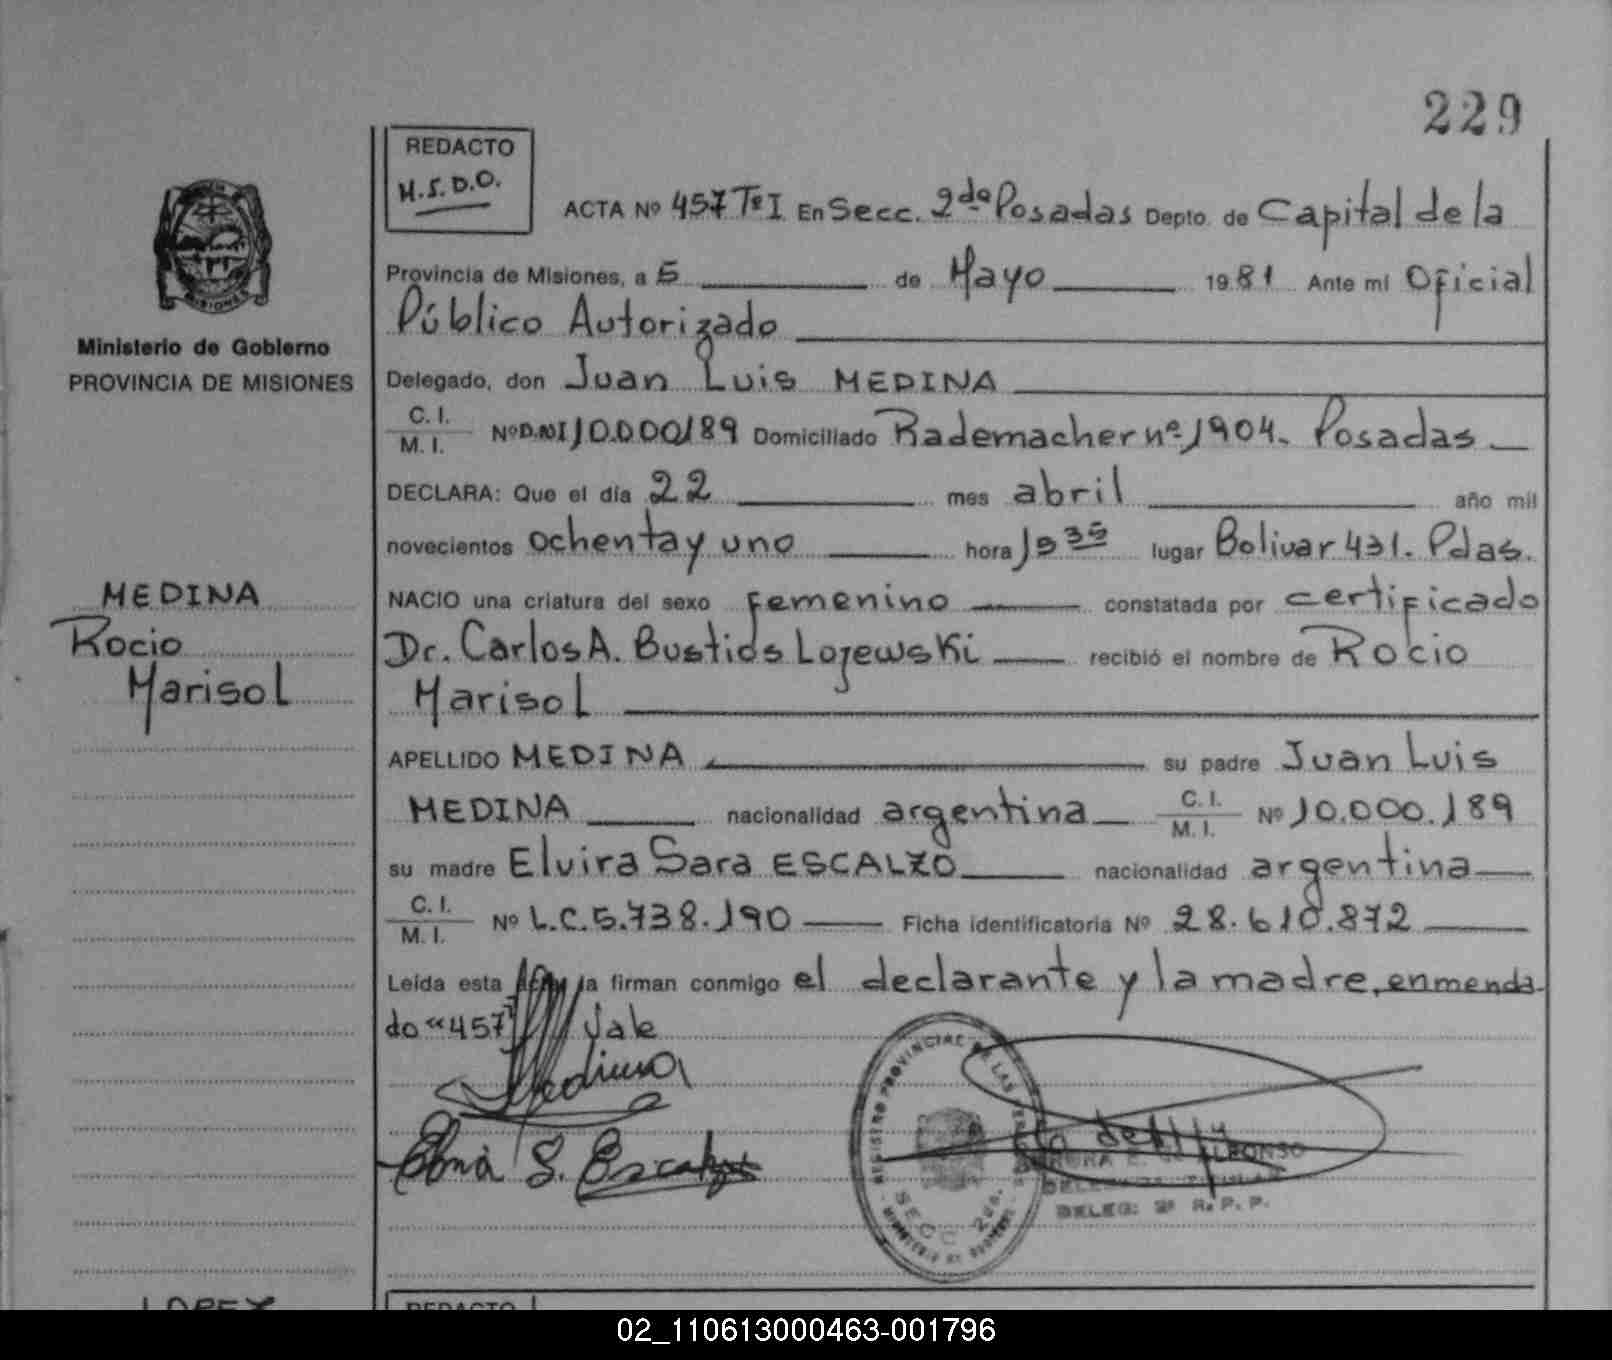 229
REDACTO
H.S.D.O.
ACTA Nº 457 Tº I En Secc. 2da Posadas Depto. de Capital de la
Provincia de Misiones, a 5 de Mayo 1981 Ante mi Oficial
Público Autorizado
MISIONES
Ministerio de Gobierno
PROVINCIA DE MISIONES
Delegado, don Juan Luis MEDINA
C. I.
M. I. Nº D.N.I 10.000189 Domiciliado Rademacher nº 1904. Posadas
DECLARA: Que el día 22 mes abril año mil
novecientos ochenta y uno hora 19 35 lugar Bolivar 431. Pdas.
MEDINA
Rocio
Marisol
NACIO una criatura del sexo femenino constatada por certificado
Dr. Carlos A. Bustids Lojewski recibió el nombre de Rocio
Marisol
APELLIDO MEDINA su padre Juan Luis
MEDINA nacionalidad argentina C. I. M. I. Nº 10.000.189
su madre Elvira Sara ESCALZO nacionalidad argentina
C. I.
M. I. Nº L.C. 5.738.190 Ficha identificatoria Nº 28.610.872
Leída esta acta la firman conmigo el declarante y la madre, enmenda-
do "457" Vale
Medina
S. Escalzo
REGISTRO PROVINCIAL DE LAS
SECC 2da.
ALFONSO
DELEG: 2ª R. P. P.
LOPEZ
REDACTO
02_110613000463-001796